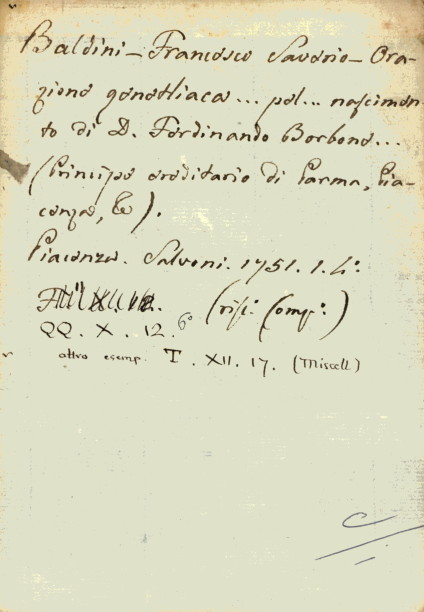 Baldini - Francesco Saverio - Ora-
zione genetliaca ... pel ... nascimen-
to di D. Ferdinando Borbone ...
(Principe ereditario di Parma, Pia-
cenza, &).
Piacenza. Salvoni. 1751. 1. 4º.
(misc. Comp.)
QQ. X. 12. 6º
altro esemp. T. XII. 17. (Miscell)
C